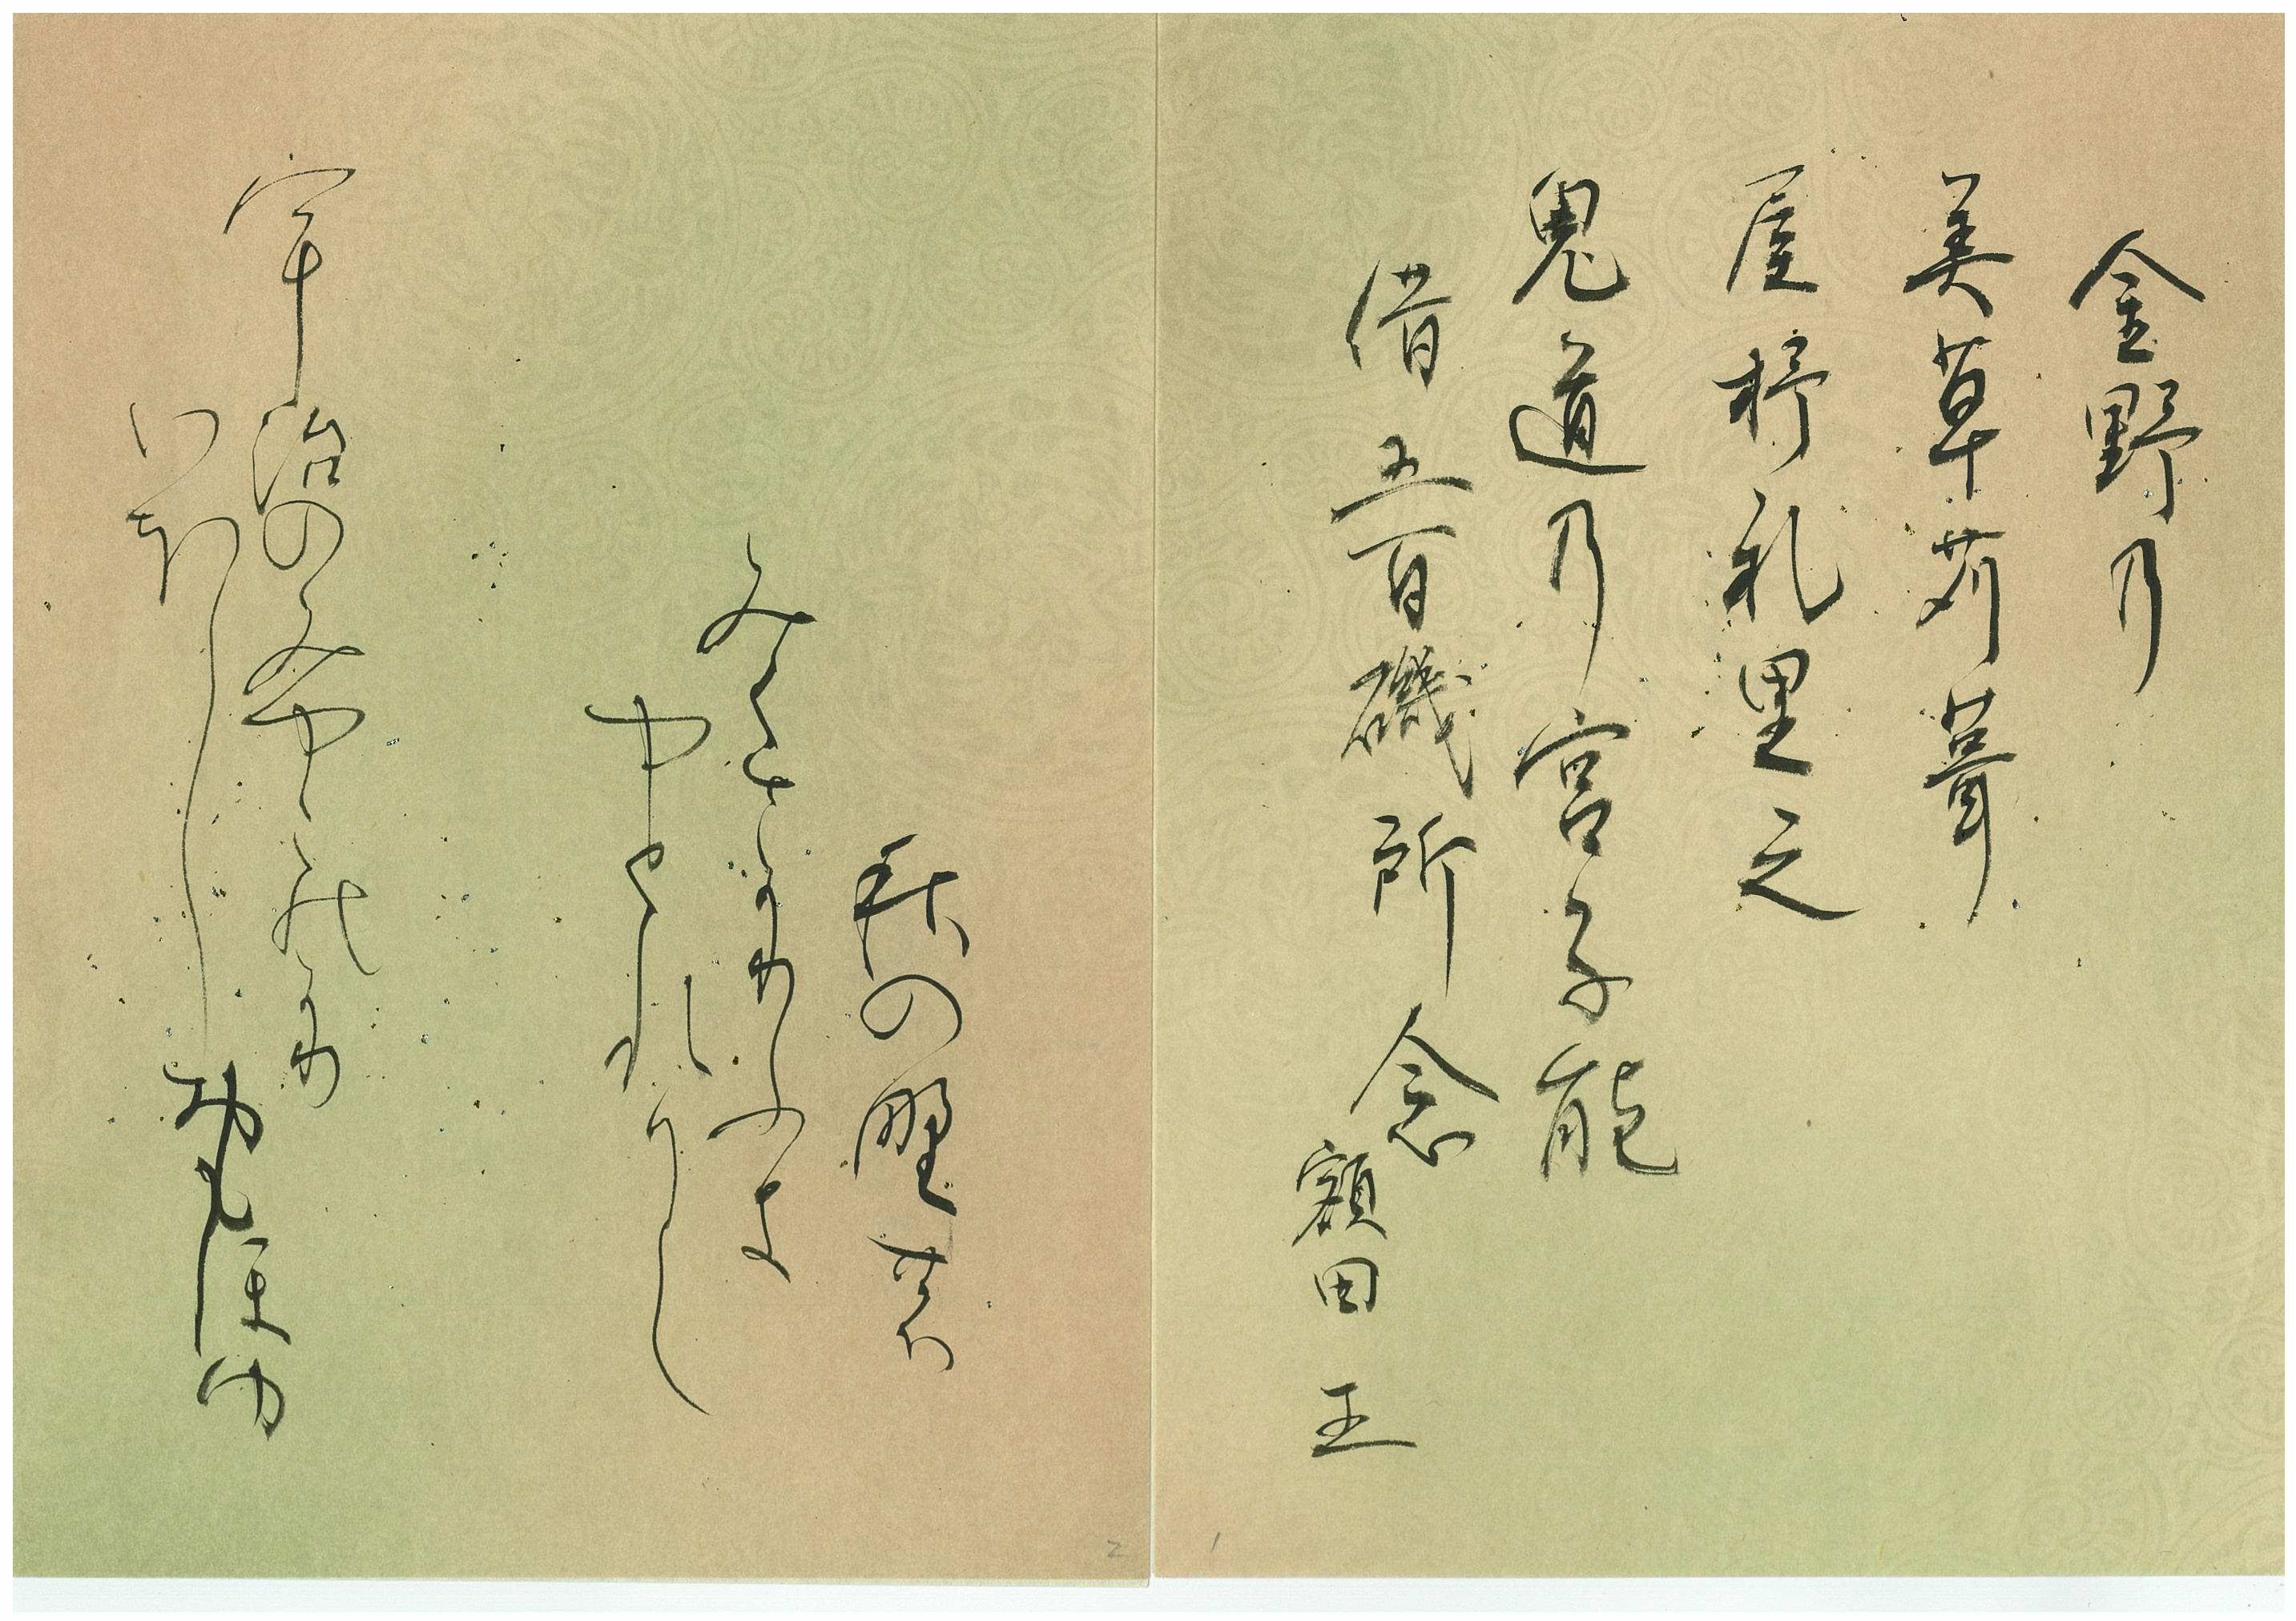 金野乃
美草苅葺
屋杼礼里之
兎道乃宮子能
借五百磯所念
額田王
1
秋の野
みくさかりふき
やとれりし
宇治のみやこのかり
いほしおもほゆ
2